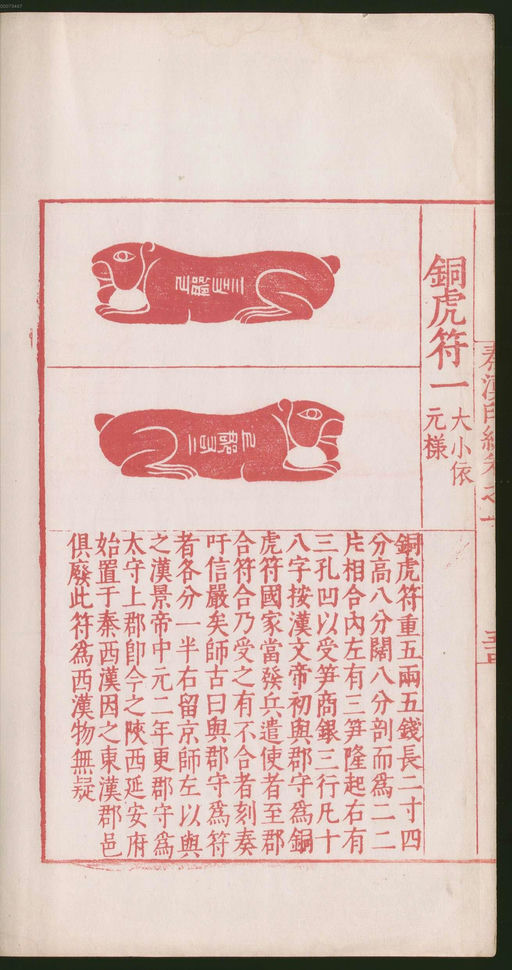 00073467
銅虎符一
大小依
元樣
銅虎符重五兩五錢長二寸四
分高八分闊八分剖而為二二
片相合內左有三笋隆起右有
三孔凹以受笋商銀三行凡十
八字按漢文帝初與郡守為銅
虎符國家當發兵遣使者至郡
合符合乃受之有不合者刻奏
吁信嚴矣師古曰與郡守為符
者各分一半右留京師左以與
之漢景帝中元二年更郡守為
太守上郡即今之陝西延安府
始置于秦西漢因之東漢郡邑
俱廢此符為西漢物無疑